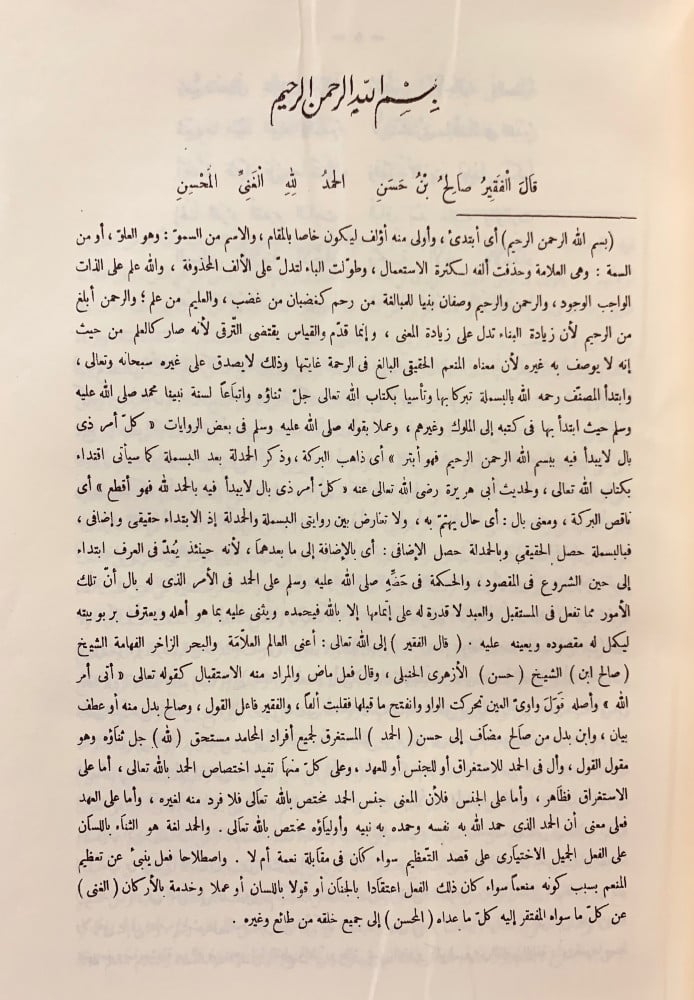 بِسْمِ اللّٰهِ الرحمن الرحيم
قَالَ الْفَقِيرُ صَالِحُ بْنُ حَسَنِ الحَمدُ لِلّٰهِ الْغَنِىِّ الْمُحْسِنِ
(بسم الله الرحمن الرحيم) أى أبتدئ ، وأولى منه أؤلف ليكون خاصا بالمقام ، والاسم من السموّ : وهو العلوّ ، أو من
السمة : وهى العلامة وحذفت ألفه لكثرة الاستعمال ، وطوّلت الباء لتدلّ على الألف المحذوفة ، والله علم على الذات
الواجب الوجود ، والرحمن والرحيم وصفان بنيا للمبالغة من رحم كغضبان من غضب ، والعليم من علم ؛ والرحمن أبلغ
من الرحيم لأن زيادة البناء تدل على زيادة المعنى ، وإنما قدّم والقياس يقتضى الترقى لأنه صار كالعلم من حيث
إنه لا يوصف به غيره لأن معناه المنعم الحقيقى البالغ فى الرحمة غايتها وذلك لايصدق على غيره سبحانه وتعالى ،
وابتدأ المصنّف رحمه الله بالبسملة تبركا بها وتأسيا بكتاب الله تعالى جلّ ثناؤه واتباعاً لسنة نبينا محمد صلى الله عليه
وسلم حيث ابتدأ بها فى كتبه إلى الملوك وغيرهم ، وعملا بقوله صلى الله عليه وسلم فى بعض الروايات « كلّ أمر ذى
بال لايبدأ فيه ببسم الله الرحمن الرحيم فهو أبتر » أى ذاهب البركة ، وذكر الحمدلة بعد البسملة كما سيأتى اقتداء
بكتاب الله تعالى ، ولحديث أبى هريرة رضى الله تعالى عنه «كلّ أمر ذى بال لايبدأ فيه بالحمد لله فهو أقطع» أى
ناقص البركة ، ومعنى بال : أى حال يهتمّ به ، ولا تعارض بين روايتى البسملة والحمدلة إذ الابتداء حقيقى وإضافى ،
فبالبسملة حصل الحقيقى وبالحمدلة حصل الإضافى : أى بالإضافة إلى ما بعدهما ، لأنه حينئذ يُعدّ فى العرف ابتداء
إلى حين الشروع فى المقصود ، والحكمة فى حَضِّهِ صلى الله عليه وسلم على الحمد فى الأمر الذى له بال أنّ تلك
الأمور مما تفعل فى المستقبل والعبد لا قدرة له على إتمامها إلا بالله فيحمده ويثنى عليه بما هو أهله ويعترف بربوبيته
ليكمل له مقصوده ويعينه عليه . ( قال الفقير ) إلى الله تعالى : أعنى العالم العلاّمة والبحر الزاخر الفهامة الشيخ
( صالح ابن ) الشيخ ( حسن ) الأزهرى الحنبلى ، وقال فعل ماض والمراد منه الاستقبال كقوله تعالى « أتى أمر
الله » وأصله قَوَلَ واوىّ العين تحركت الواو وانفتح ما قبلها فقلبت ألفا ، والفقير فاعل القول ، وصالح بدل منه أو عطف
بيان ، وابن بدل من صالح مضاف إلى حسن ( الحمد ) المستغرق لجميع أفراد المحامد مستحق ( لله ) جل ثناؤه وهو
مقول القول ، وأل فى الحمد للاستغراق أو للجنس أو للعهد ، وعلى كلّ منها تفيد اختصاص الحمد بالله تعالى ، أما على
الاستغراق فظاهر ، وأما على الجنس فلأن المعنى جنس الحمد مختص بالله تعالى فلا فرد منه لغيره ، وأما على العهد
فعلى معنى أن الحمد الذى حمد الله به نفسه وحمده به نبيه وأولياؤه مختص بالله تعالى . والحمد لغة هو الثناء باللسان
على الفعل الجميل الاختيارى على قصد التعظيم سواء كان فى مقابلة نعمة أم لا . واصطلاحا فعل ينبئ عن تعظيم
المنعم بسبب كونه منعماً سواء كان ذلك الفعل اعتقادا بالجنان أو قولا باللسان أو عملا وخدمة بالأركان ( الغنى )
عن كلّ ما سواه المفتقر إليه كلّ ما عداه ( المحسن ) إلى جميع خلقه من طائع وغيره .